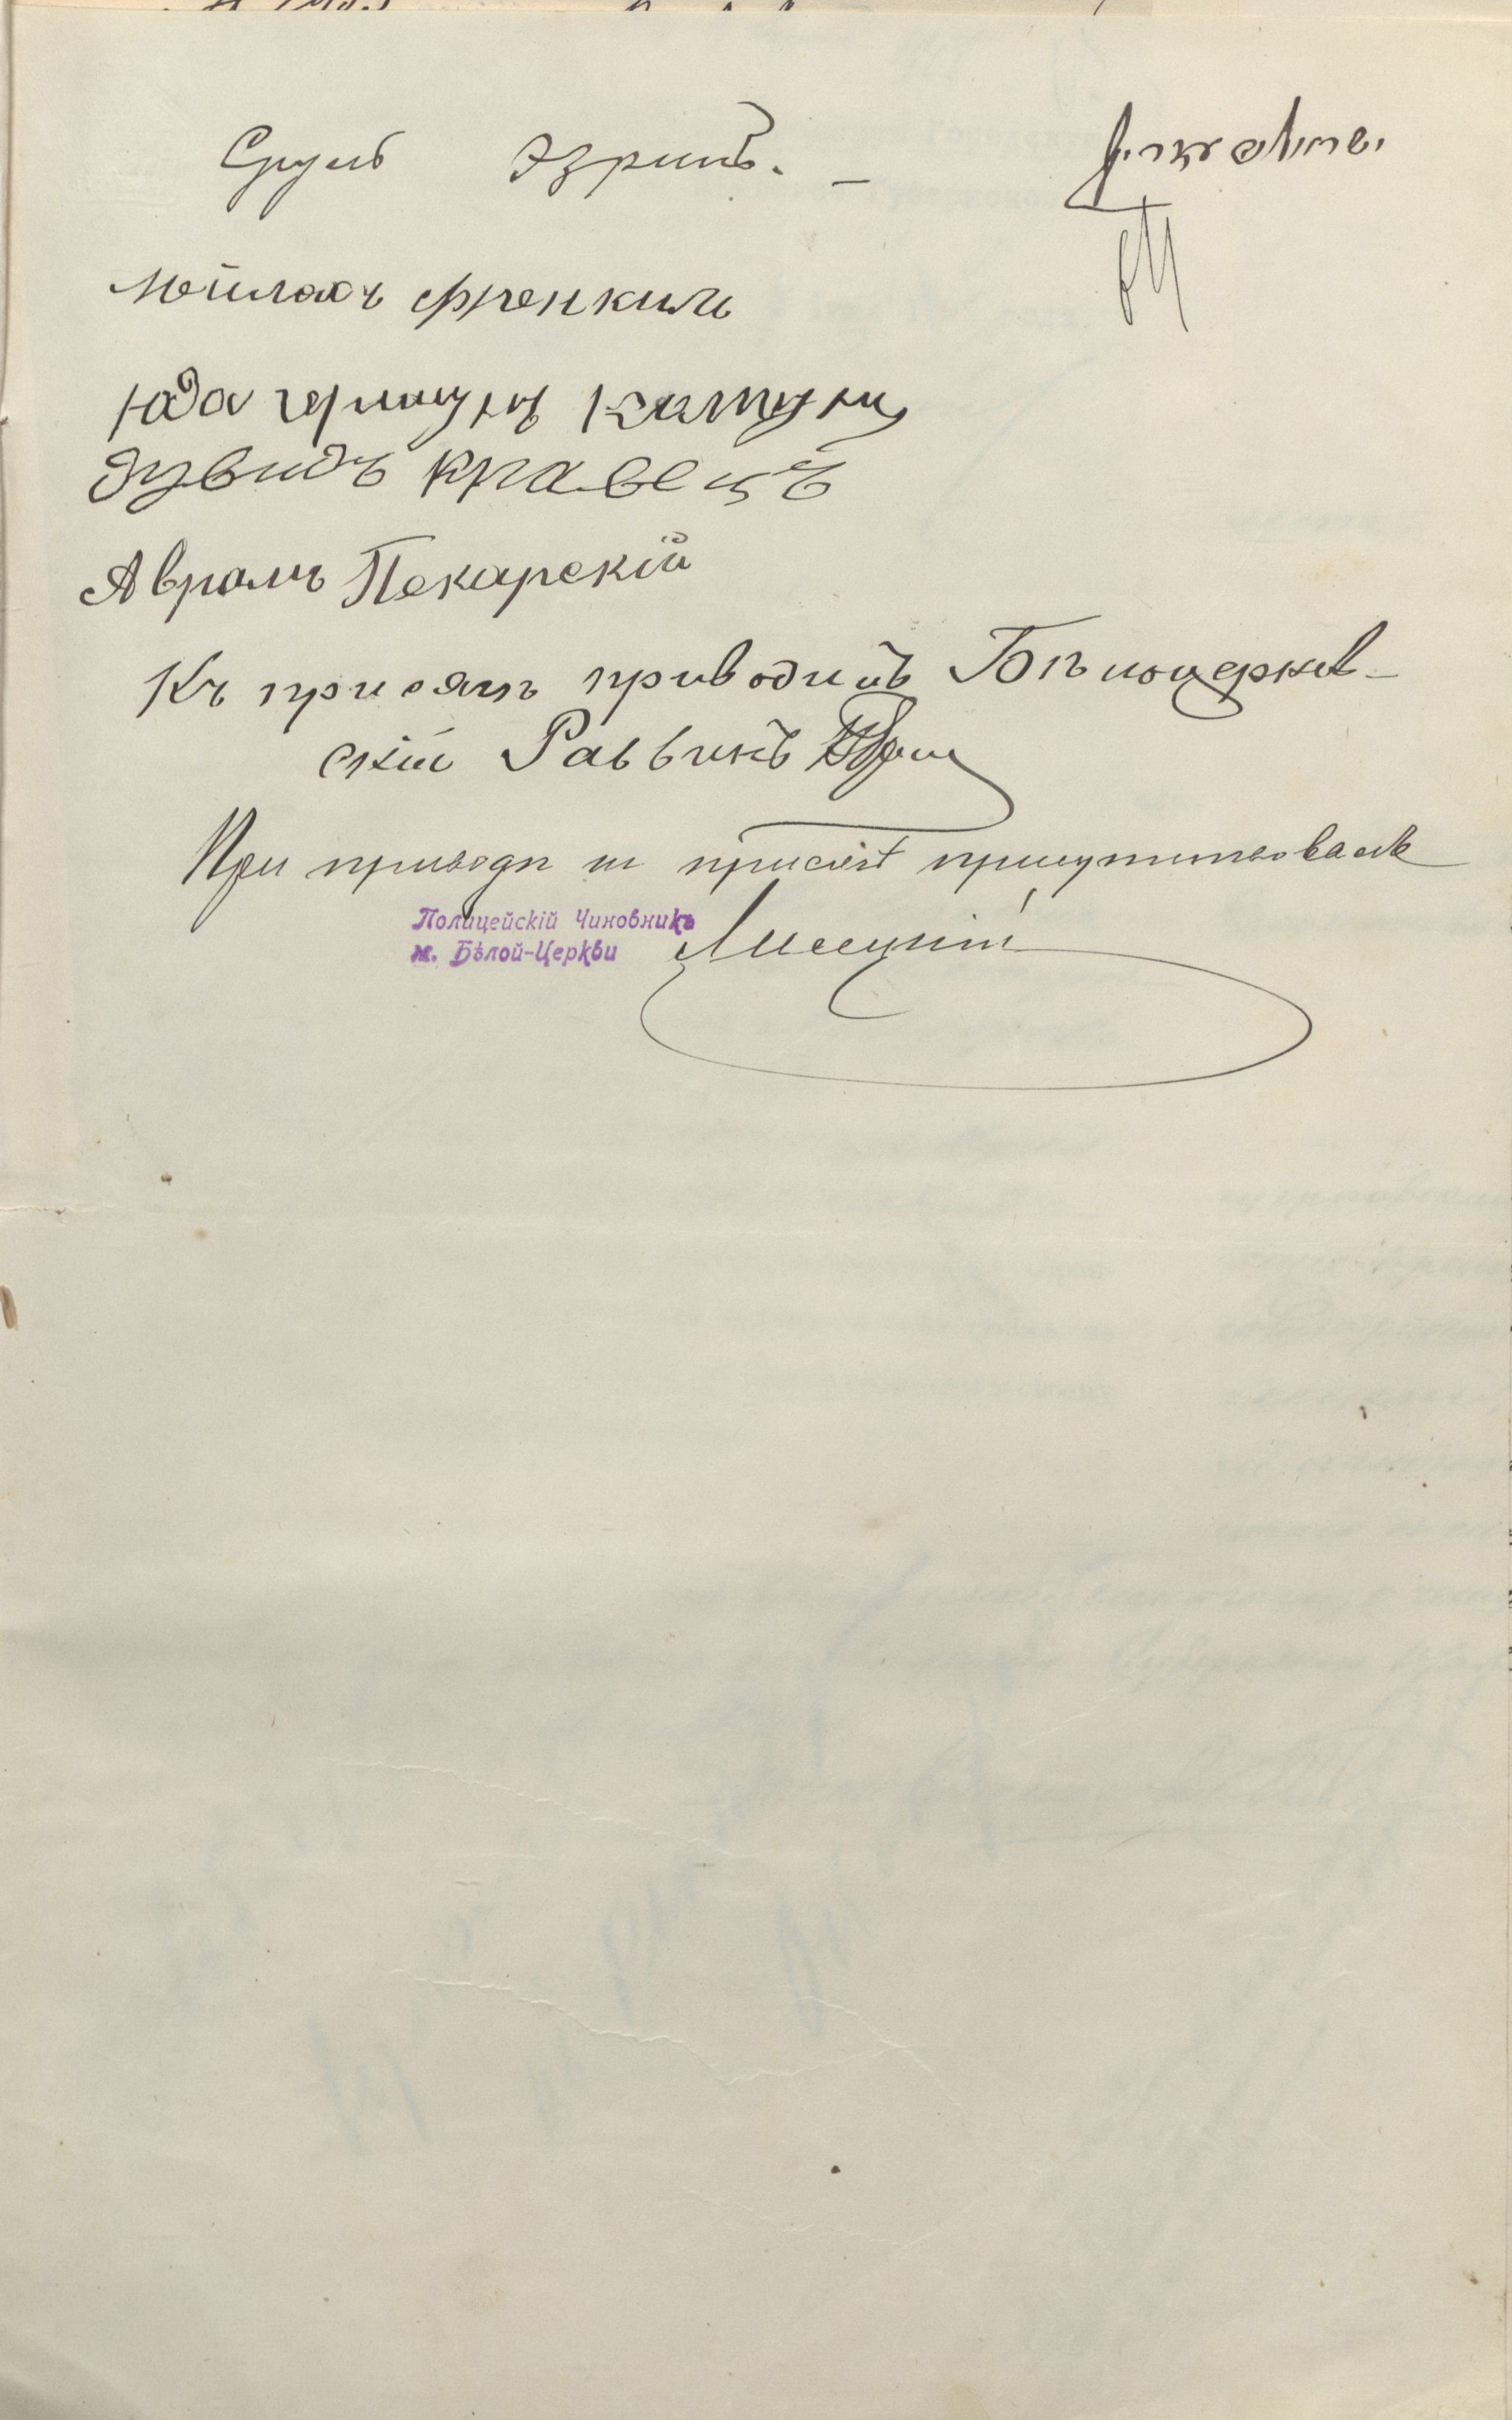 Сруль Эзринъ. –
Мейлахъ Френкиль
Юда гершунъ
дувидъ кравецъ
Аврамъ Пекарскій
Къ присягѣ приводилъ Бѣлоцерков-
скій Раввинъ
При приводѣ къ присягѣ присутствовалъ
Полицейскій Чиновникъ
м. Бѣлой-Церкви